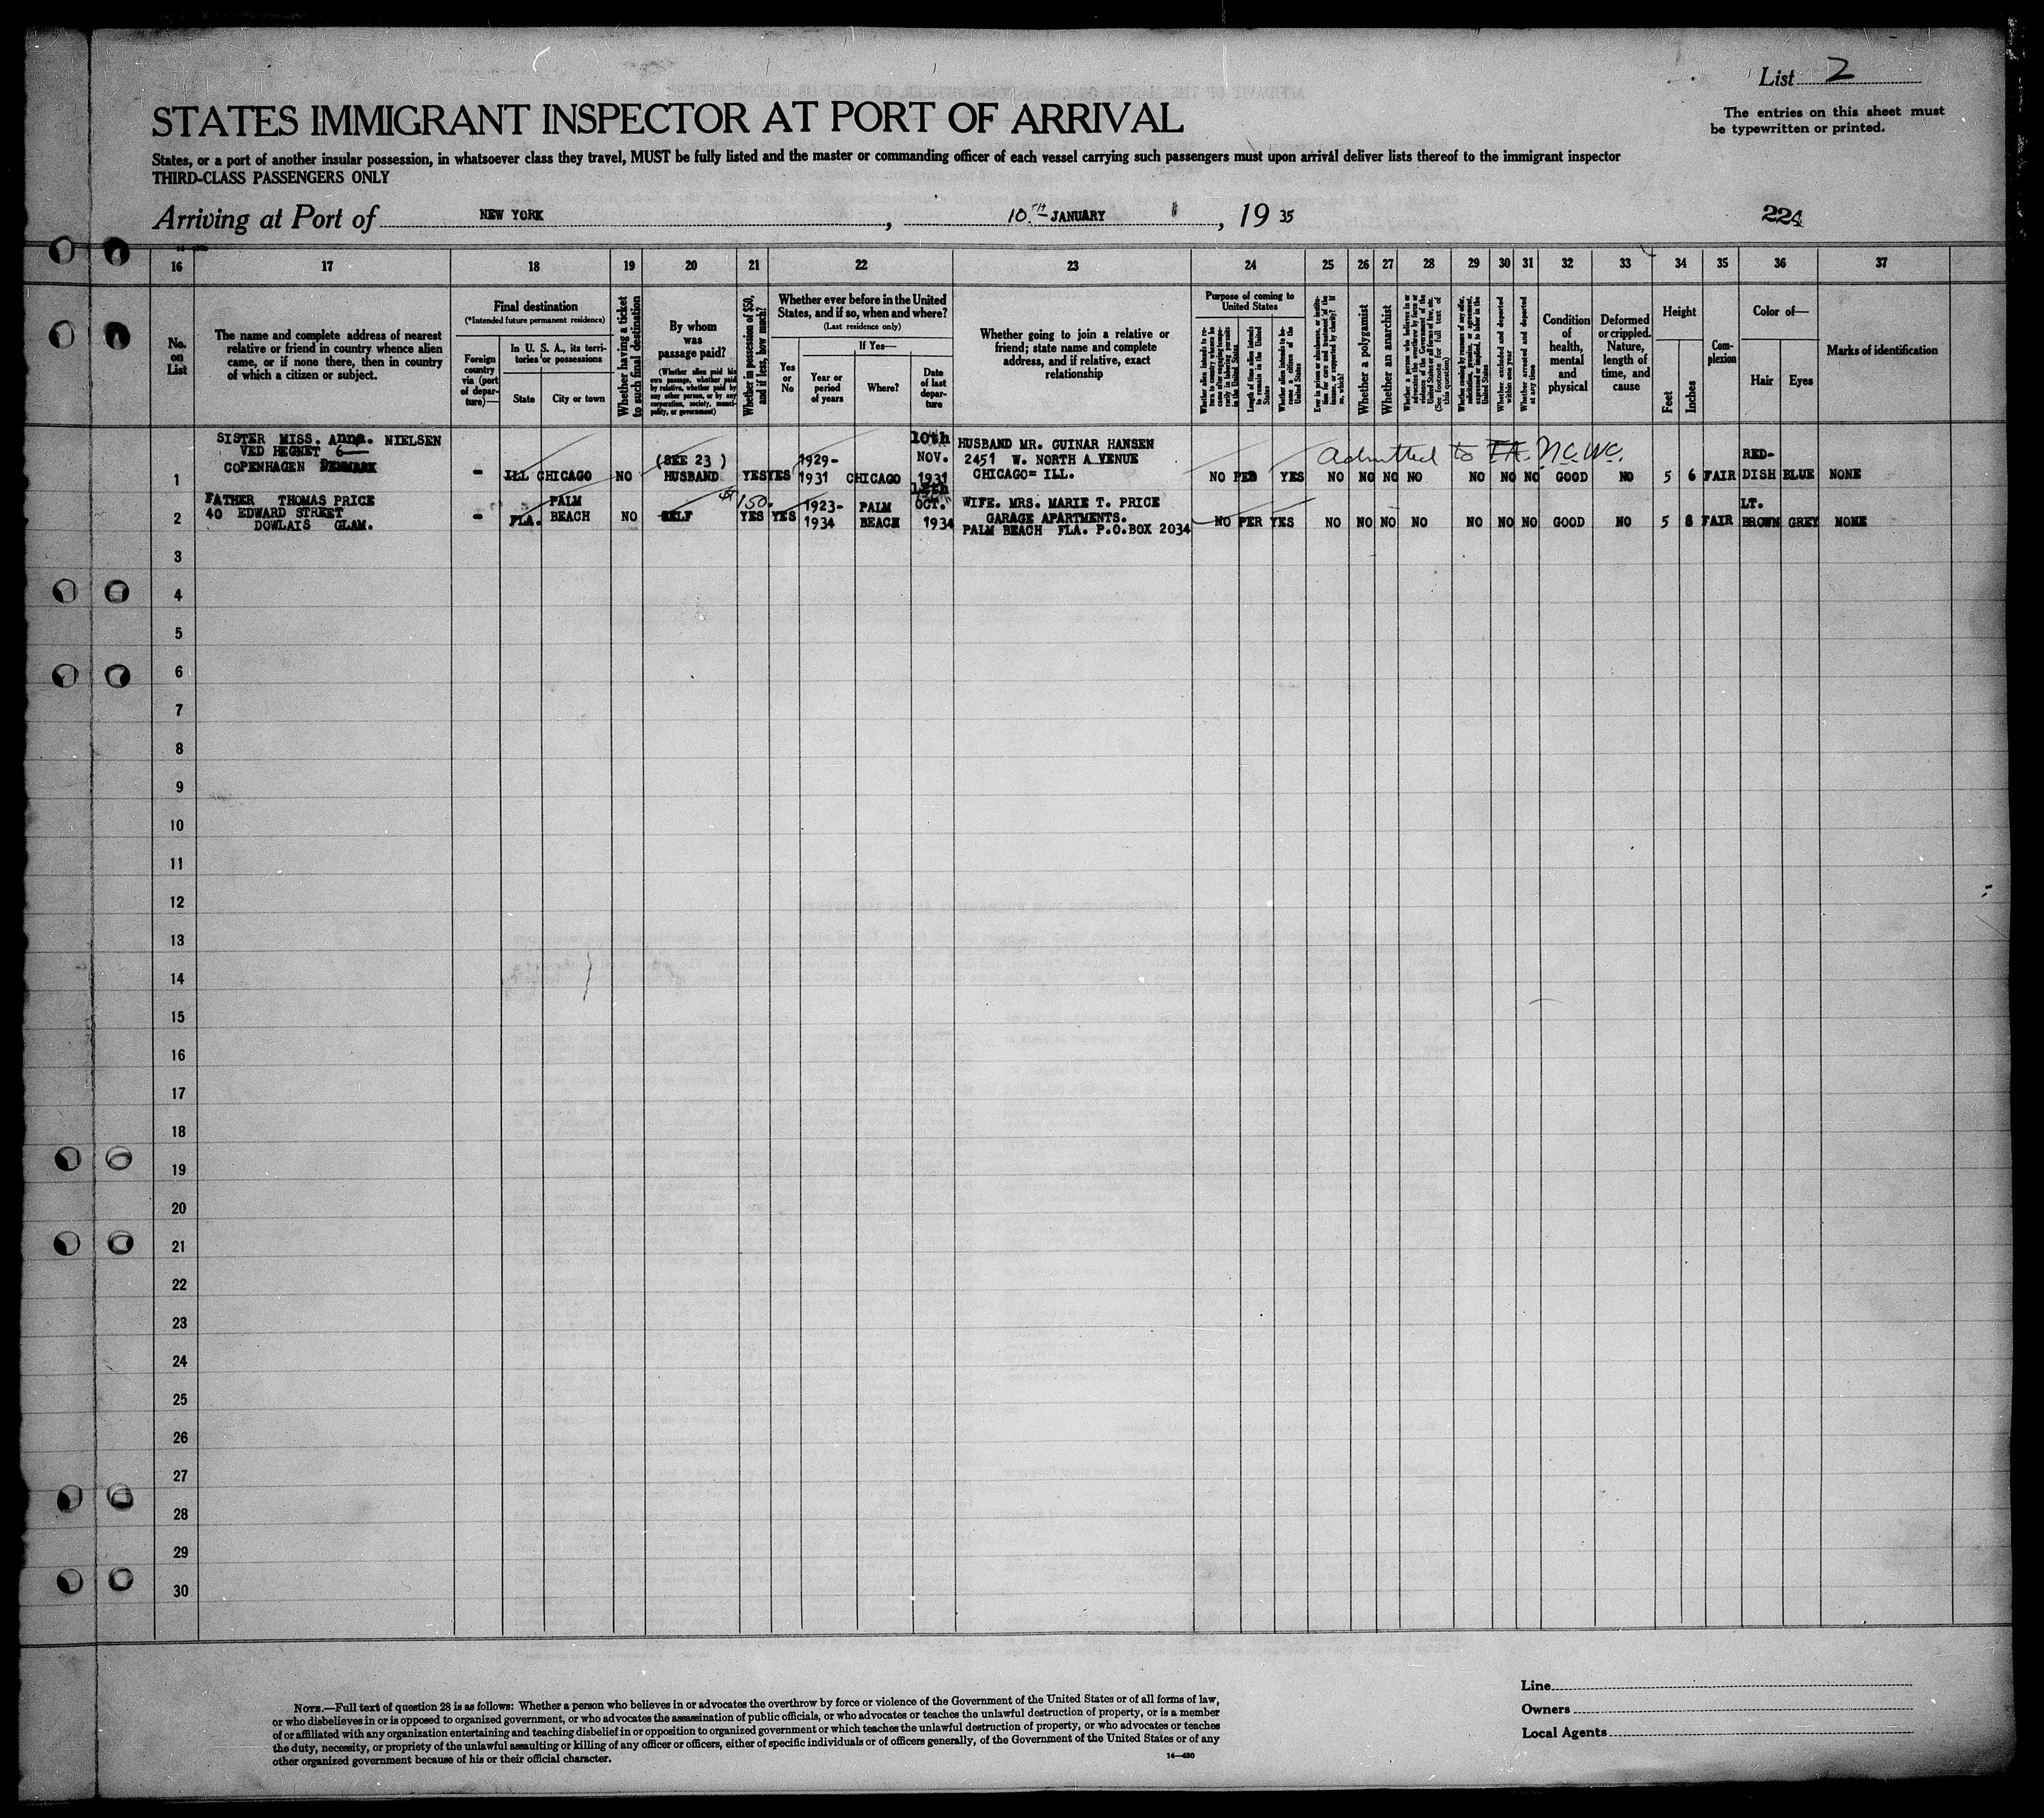 List 2
The entries on this sheet must
be typewritten or printed.
STATES IMMIGRANT INSPECTOR AT PORT OF ARRIVAL
States, or a port of another insular possession, in whatsoever class they travel, MUST be fully listed and the master or commanding officer of each vessel carrying such passengers must upon arrival deliver lists thereof to the immigrant inspector
THIRD-CLASS PASSENGERS ONLY
Arriving at Port of NEW YORK, 10TH JANUARY, 19 35
224
16 17 18 19 20 21 22 23 24 25 26 27 28 29 30 31 32 33 34 35 36 37
No. on List
The name and complete address of nearest
relative or friend in country whence alien
came, or if none there, then in country
of which a citizen or subject.
Final destination
(*Intended future permanent residence)
Foreign country via (port of departure)—
In U. S. A., its territories or possessions
State
City or town
Whether having a ticket to such final destination
By whom was passage paid?
(Whether alien paid his own passage, whether paid by relative, whether paid by any other person, or by any corporation, society, municipality, or government)
Whether in possession of $50, and if less, how much?
Whether ever before in the United
States, and if so, when and where?
(Last residence only)
Yes or No
If Yes—
Year or period of years
Where?
Date of last departure
Whether going to join a relative or
friend; state name and complete
address, and if relative, exact
relationship
Purpose of coming to United States
Length of time alien intends to remain in the United States
Whether alien intends to become a citizen of the United States
Whether a polygamist
Whether an anarchist
Whether arrested and deported at any time
Condition of health, mental and physical
Deformed or crippled. Nature, length of time, and cause
Height
Feet
Inches
Complexion
Color of—
Hair
Eyes
Marks of identification
1 SISTER MISS. Anna. NIELSEN
VED HEGNET 6—
COPENHAGEN DENMARK
- ILL CHICAGO NO (SEE 23) HUSBAND YES YES 1929-1931 CHICAGO 10th NOV. 1931
HUSBAND MR. GUINAR HANSEN
2451 W. NORTH A VENUE
CHICAGO= ILL.
admitted to
NO PER YES NO NO NO NO NO NO NO GOOD NO 5 6 FAIR RED-DISH BLUE NONE
2 FATHER THOMAS PRICE
40 EDWARD STREET
DOWLAIS GLAM.
- FLA. PALM BEACH NO SELF 150. YES YES 1923-1934 PALM BEACH OCT. 1934
WIFE. MRS. MARIE T. PRICE
GARAGE APARTMENTS.
PALM BEACH FLA. P.O.BOX 2034
NO PER YES NO NO NO NO NO NO NO GOOD NO 5 8 FAIR LT. BROWN GREY NONE
3
4
5
6
7
8
9
10
11
12
13
14
15
16
17
18
19
20
21
22
23
24
25
26
27
28
29
30
NOTE.—Full text of question 28 is as follows: Whether a person who believes in or advocates the overthrow by force or violence of the Government of the United States or of all forms of law,
or who disbelieves in or is opposed to organized government, or who advocates the assassination of public officials, or who advocates or teaches the unlawful destruction of property, or is a member
of or affiliated with any organization entertaining and teaching disbelief in or opposition to organized government or which teaches the unlawful destruction of property, or who advocates or teaches
the duty, necessity, or propriety of the unlawful assaulting or killing of any officer or officers, either of specific individuals or of officers generally, of the Government of the United States or of any
other organized government because of his or their official character.
14—430
Line
Owners
Local Agents